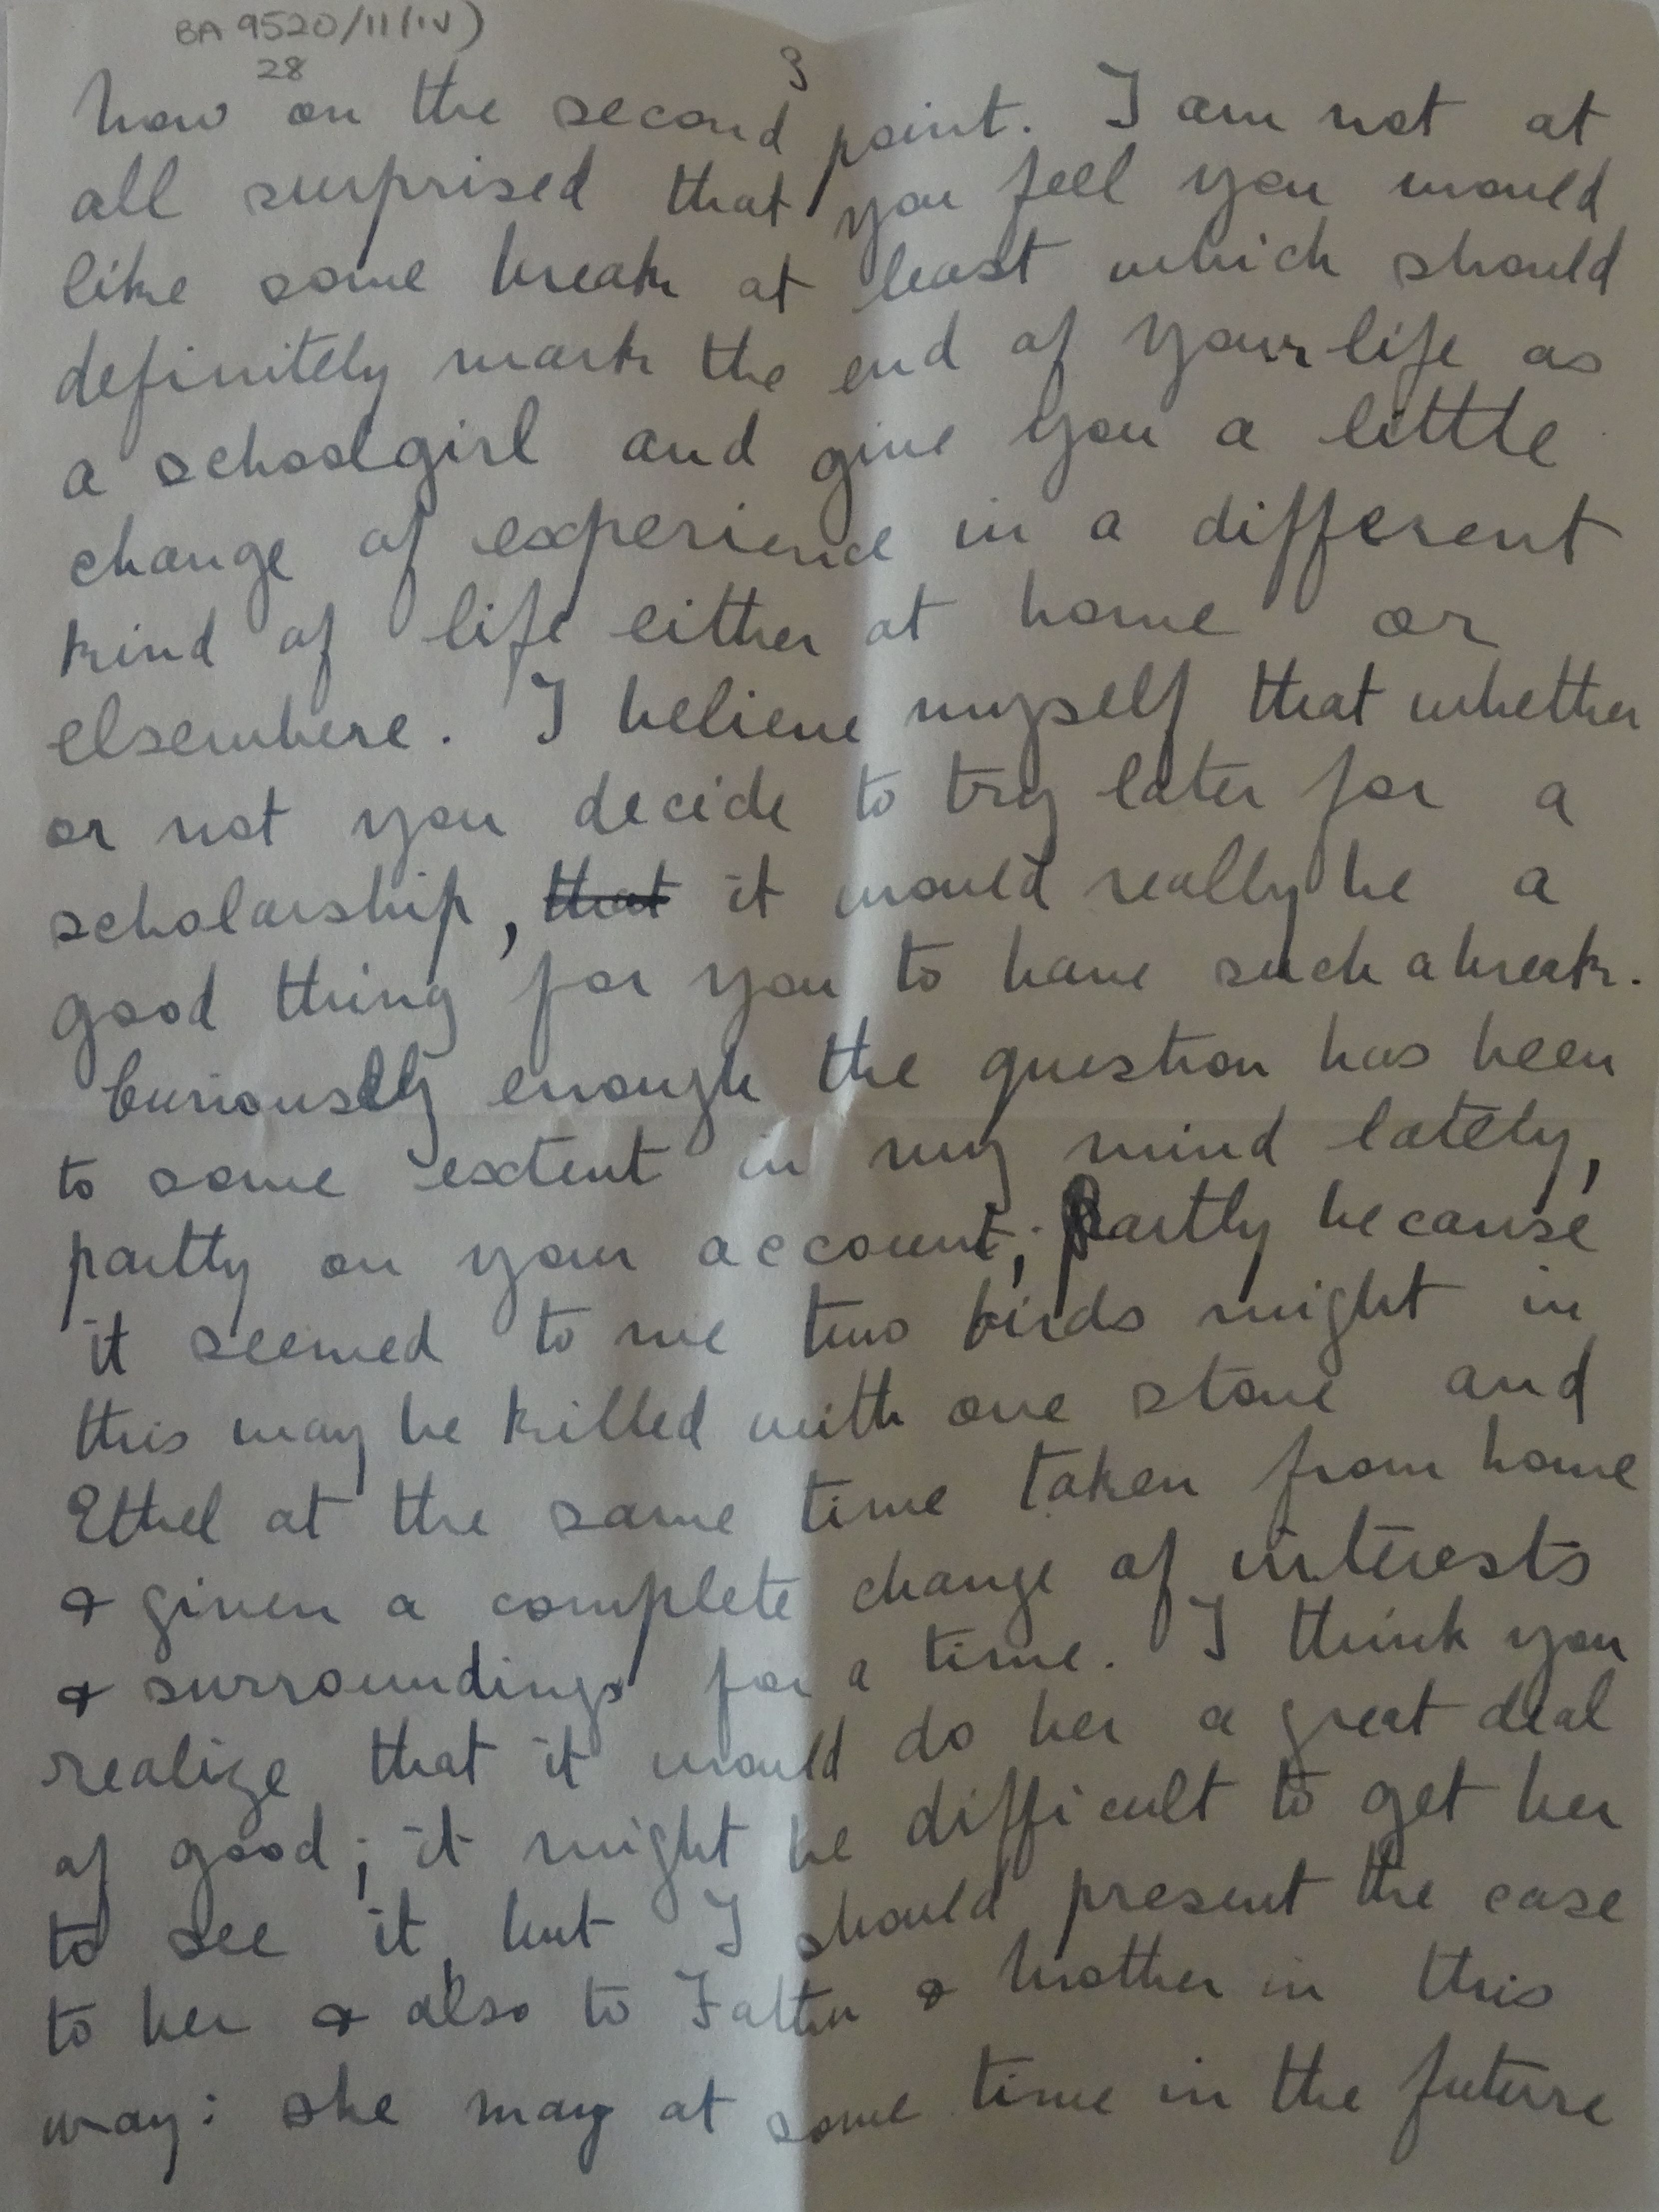 BA 9520/11(iv)
28
3
Now on the second point. I am not at
all surprised that you feel you would
like some break at least which should
definitely mark the end of your life as
a schoolgirl and give you a little
change of experience in a different
kind of life either at home or
elsewhere. I believe myself that whether
or not you decide to try later for a
scholarship, that it would really be a
good thing for you to have such a break.
Curiously enough the question has been
to some extent in my mind lately,
partly on your account; partly because
it seemed to me two birds might in
this way be killed with one stone and
Ethel at the same time taken from home
& given a complete change of interests
& surroundings for a time. I think you
realize that it would do her a great deal
of good; it might be difficult to get her
to see it, but I should present the case
to her & also to Father & Mother in this
way: she may at some time in the future